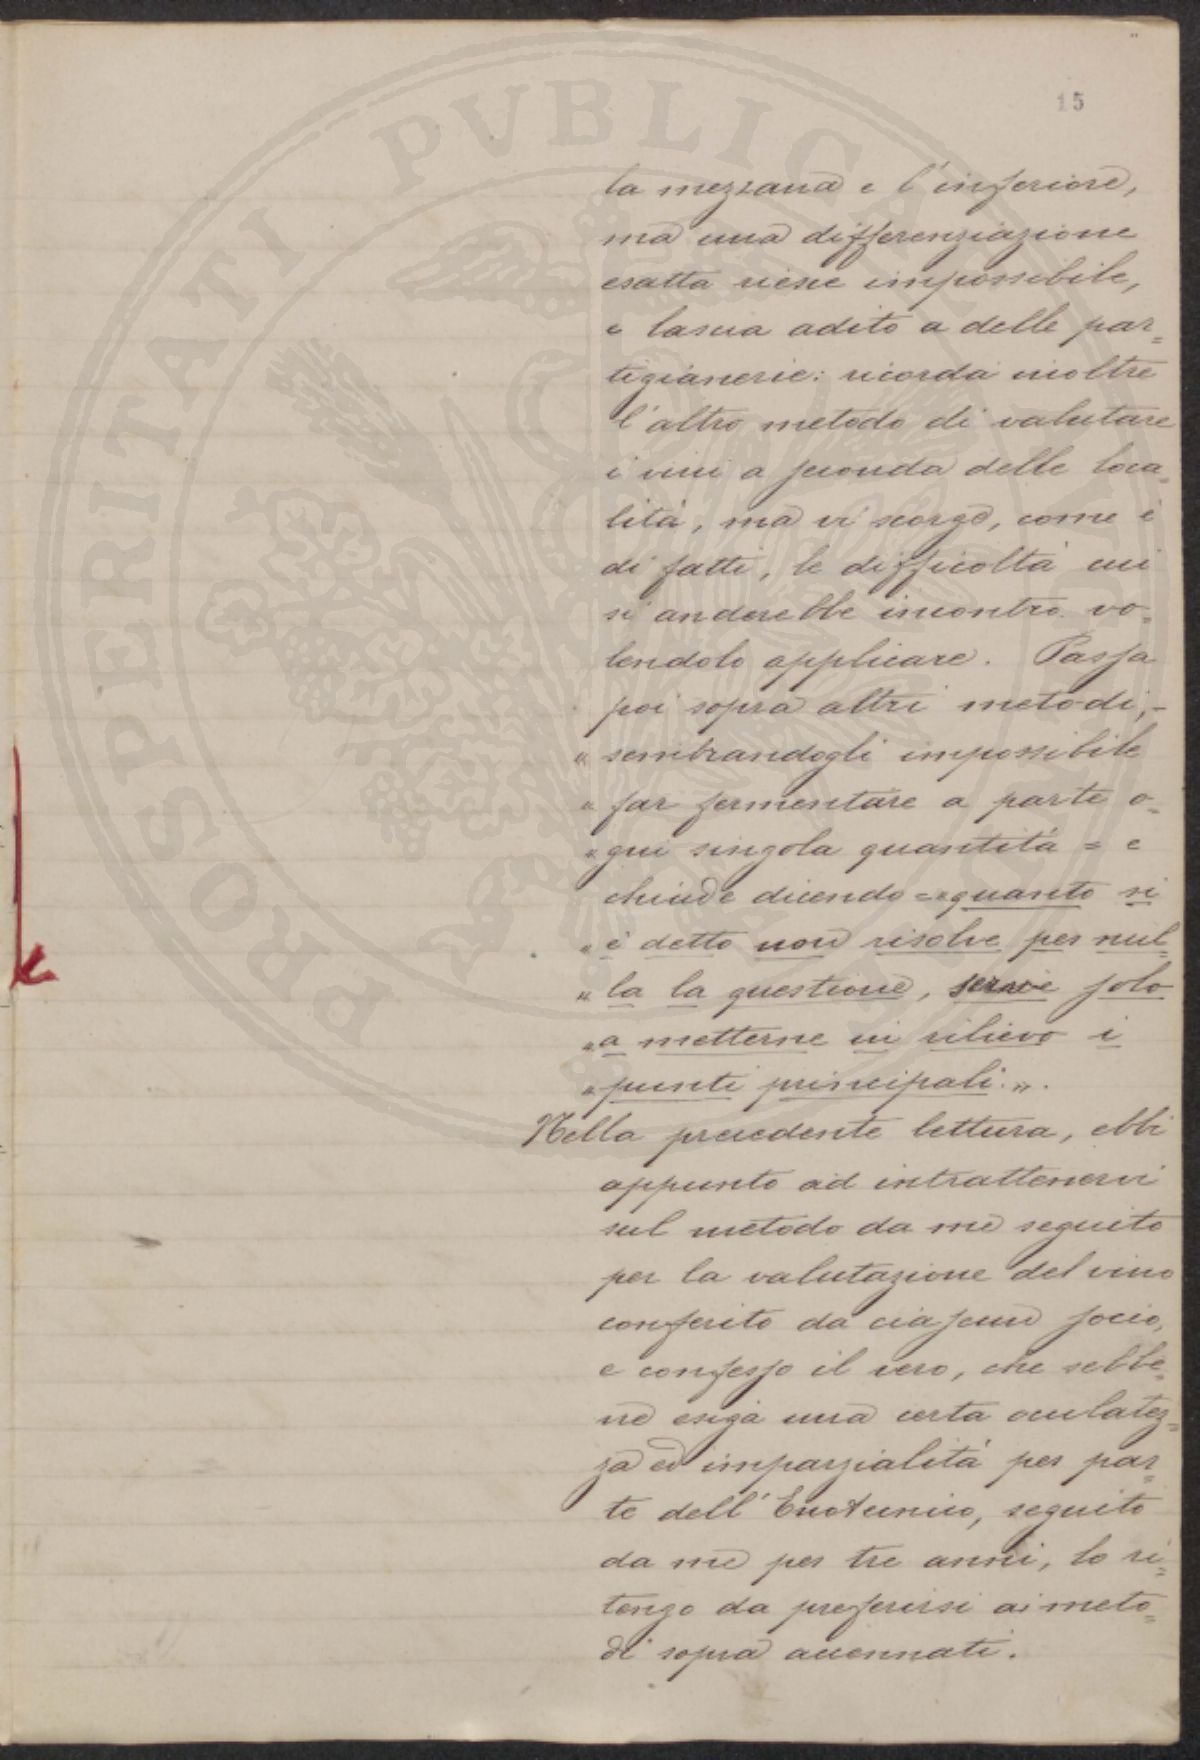 15
la mezzana e l'inferiore,
ma una differenziazione
esatta riesce impossibile,
e lascia adito a delle par=
tigianerie: ricorda inoltre
l'altro metodo di valutare
i vini a seconda delle loca=
lità, ma vi scorge, come è
di fatti, le difficoltà cui
si anderebbe incontro vo=
lendolo applicare. Passa
poi sopra altri metodi, -
" sembrandogli impossibile
" far fermentare a parte o=
" gni singola quantità = e
chiude dicendo = " quanto si
" è detto non risolve per nul=
" la la questione, serve solo
" a metterne in rilievo i
" punti principali. ".
Nella precedente lettura, ebbi
appunto ad intrattenervi
sul metodo da me seguito
per la valutazione del vino
conferito da ciascun socio,
e confesso il vero, che sebbe=
ne esiga una certa oculatez=
za ed imparzialità per par=
te dell'Enotecnico, seguito
da me per tre anni, lo ri=
tengo da preferirsi ai meto=
di sopra accennati.
PROSPERITATI PVBLICAE